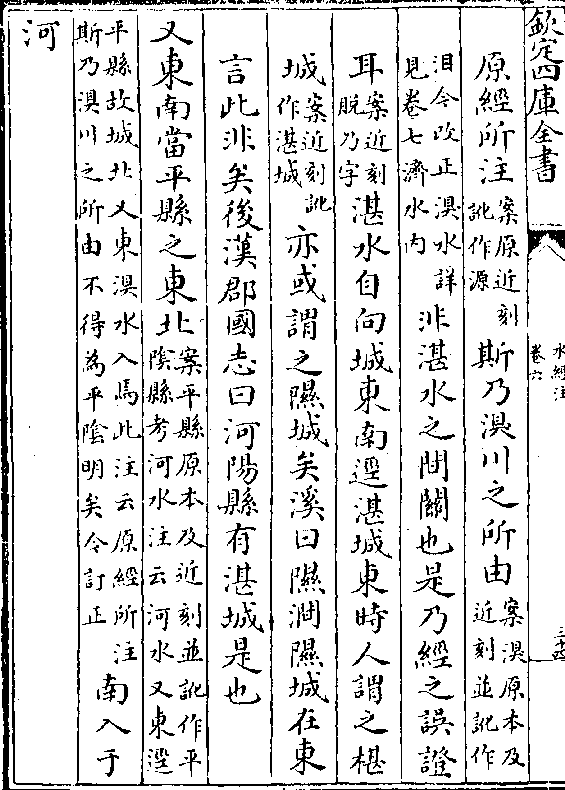 欽定四庫全書
水經注
卷六
三十四
原經所注案原近刻訛作源斯乃湨川之所由案湨原本及近刻並訛作
泪今改正湨水詳見卷七濟水内非湛水之間關也是乃經之誤證
耳案近刻脱乃字湛水自向城東南逕湛城東時人謂之椹
城案近刻訛作湛城亦或謂之隰城矣溪曰隰澗隰城在東
言此非矣後漢郡國志曰河陽縣有湛城是也
又東南當平縣之東北案平縣原本及近刻並訛作平隂縣考河水注云河水又東逕
平縣故城北又東湨水入焉此注云原經所注斯乃湨川之所由不得為平隂明矣今訂正南入于
河